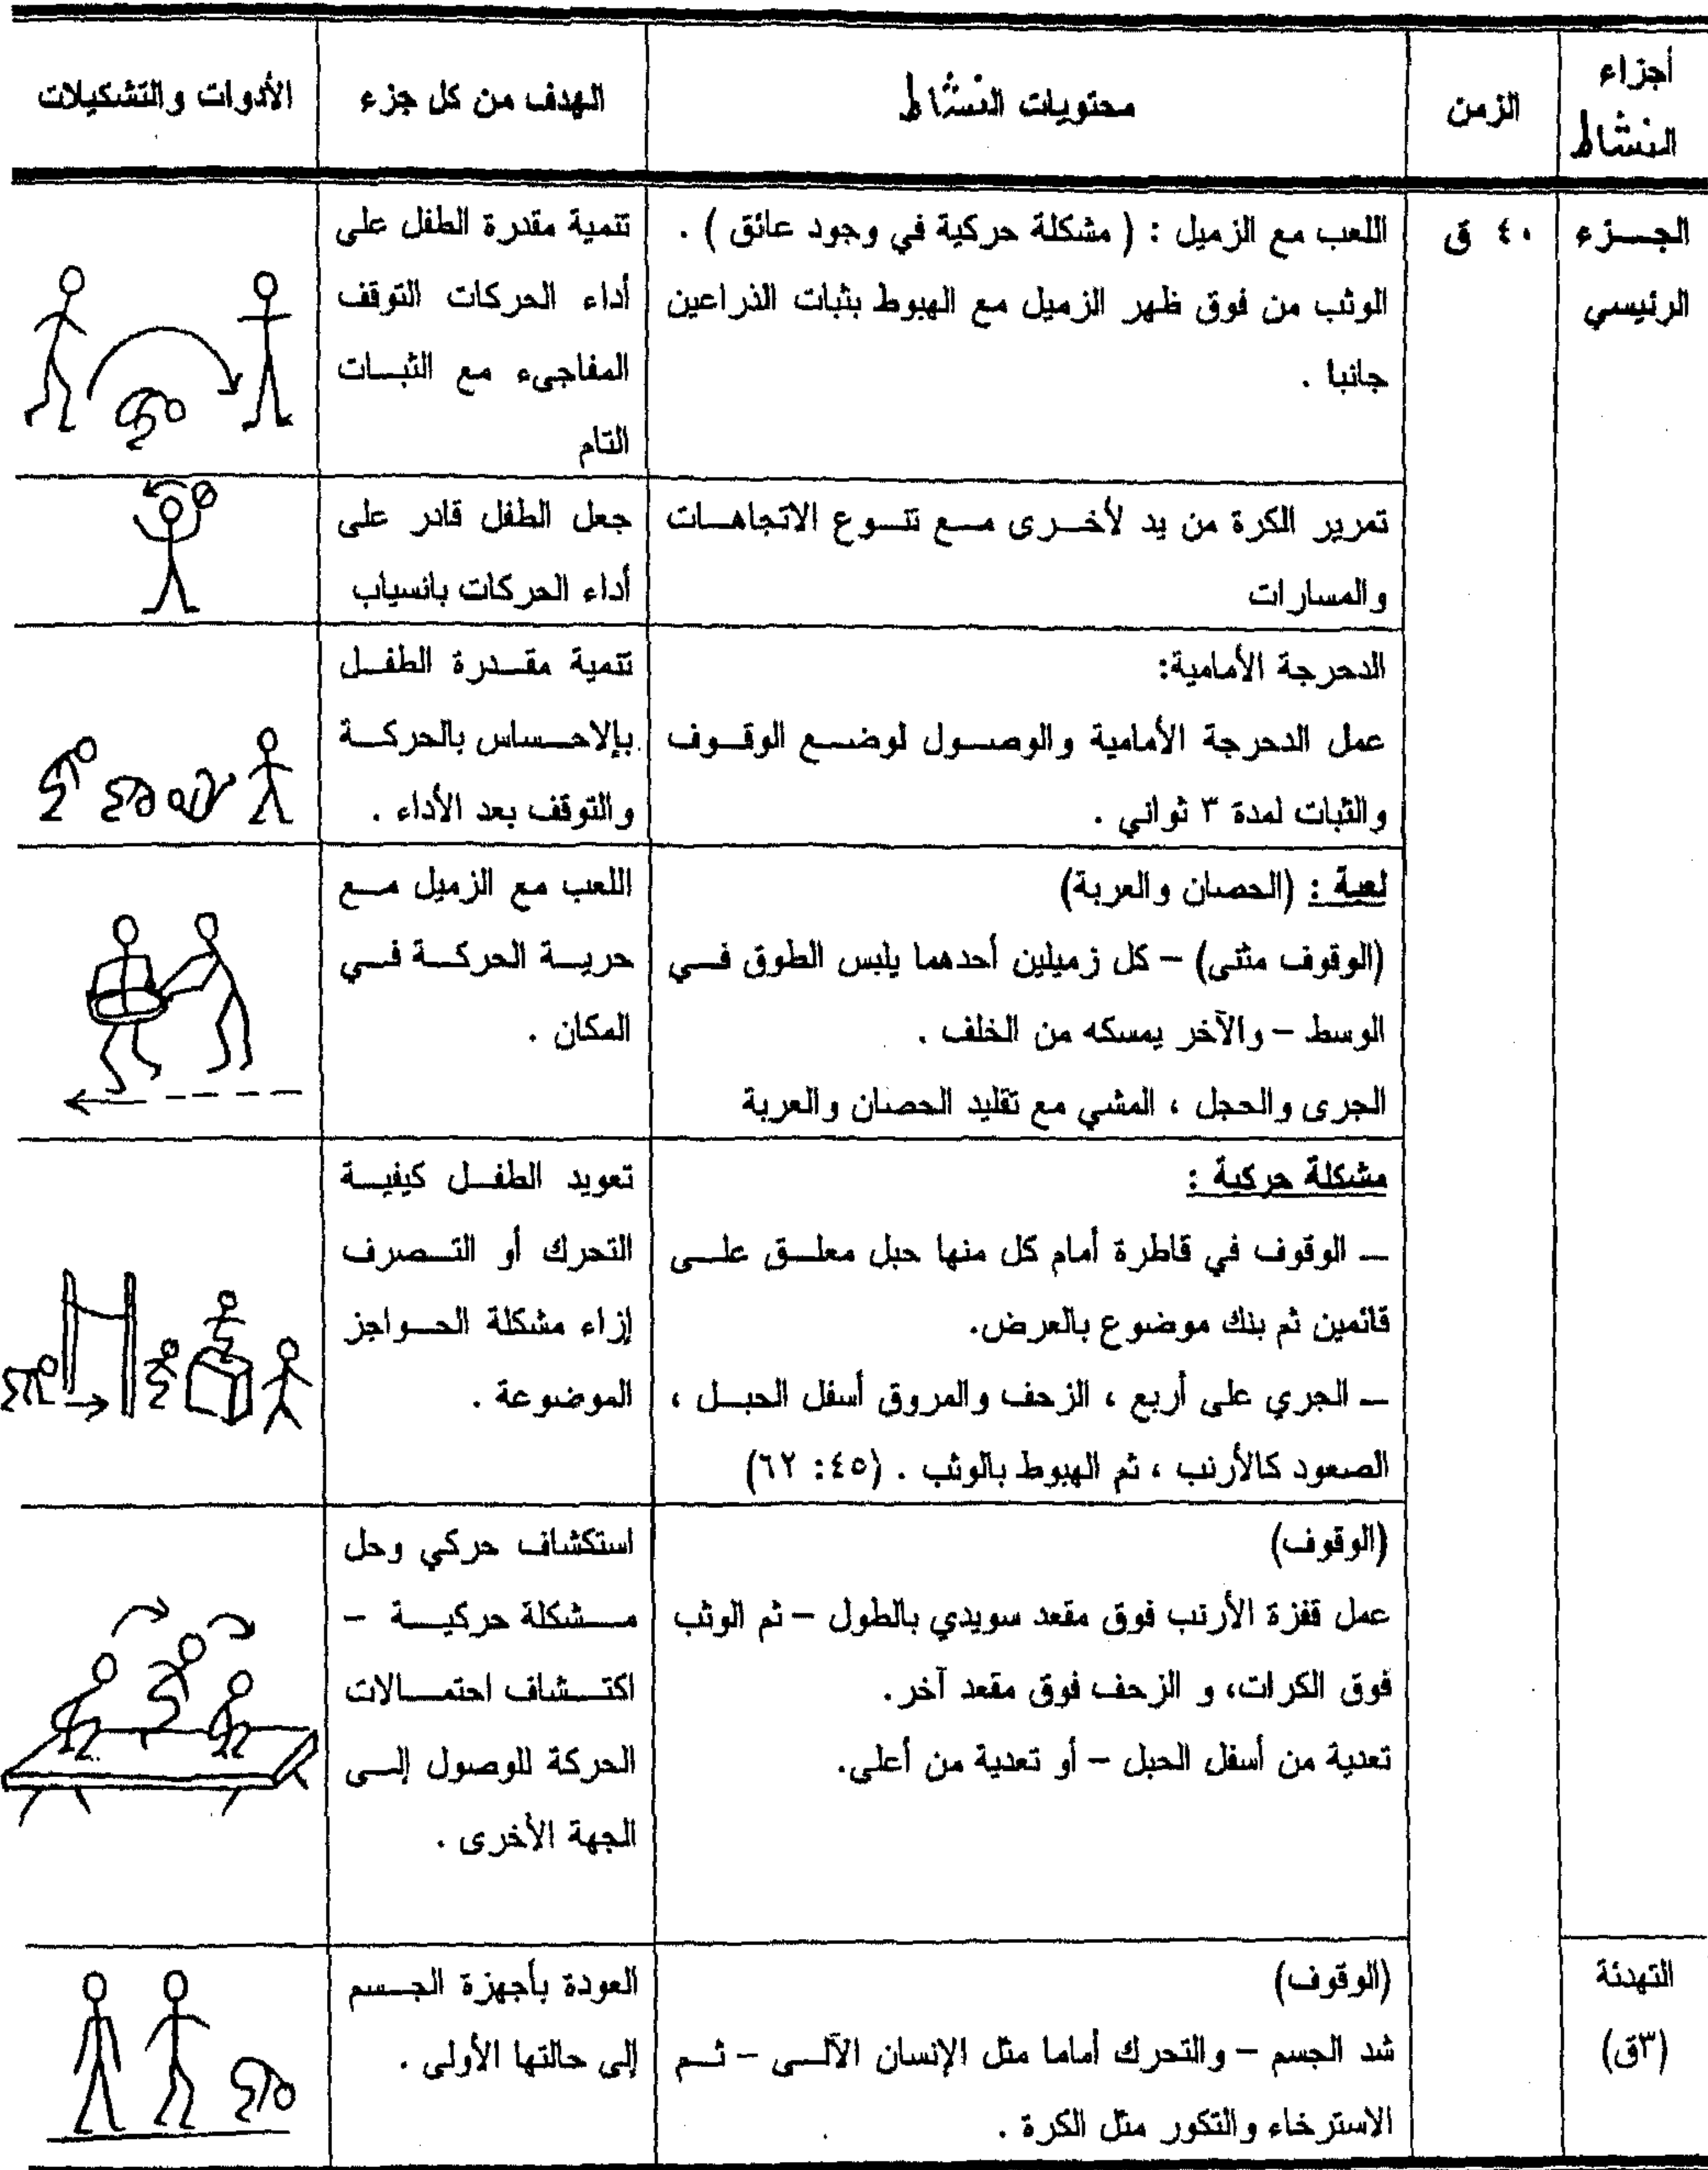 أجزاء النشاط
الزمن
محتويات النشاط
الهدف من كل جزء
الأدوات والتشكيلات
الجزء
الرئيسي
٤٠ ق
اللعب مع الزميل : ( مشكلة حركية في وجود عائق ) .
الوثب من فوق ظهر الزميل مع الهبوط بثبات الذراعين
جانبا .
تنمية مقدرة الطفل على
أداء الحركات التوقف
المفاجىء مع الثبات
التام
تمرير الكرة من يد لأخرى مع تنوع الاتجاهات
والمسارات
جعل الطفل قادر على
أداء الحركات بانسياب
الدحرجة الأمامية:
عمل الدحرجة الأمامية والوصول لوضع الوقوف
والثبات لمدة ٣ ثواني .
تنمية مقدرة الطفل
بالإحساس بالحركة
والتوقف بعد الأداء .
لعبة : (الحصان والعربة)
(الوقوف مثنى) – كل زميلين أحدهما يلبس الطوق في
الوسط – والآخر يمسكه من الخلف .
الجرى والحجل ، المشي مع تقليد الحصان والعربة
اللعب مع الزميل مع
حرية الحركة في
المكان .
مشكلة حركية :
– الوقوف في قاطرة أمام كل منها حبل معلق على
قائمين ثم بنك موضوع بالعرض.
– الجري على أربع ، الزحف والمروق أسفل الحبل ،
الصعود كالأرنب ، ثم الهبوط بالوثب . (٤٥: ٦٢)
تعويد الطفل كيفية
التحرك أو التصرف
إزاء مشكلة الحواجز
الموضوعة .
(الوقوف)
عمل قفزة الأرنب فوق مقعد سويدي بالطول – ثم الوثب
فوق الكرات، و الزحف فوق مقعد آخر.
تعدية من أسفل الحبل – أو تعدية من أعلى.
استكشاف حركي وحل
مشكلة حركية –
اكتشاف احتمالات
الحركة للوصول إلى
الجهة الأخرى .
التهدئة
(٣ق)
(الوقوف)
شد الجسم – والتحرك أماما مثل الإنسان الآلى – ثم
الاسترخاء والتكور مثل الكرة .
العودة بأجهزة الجسم
إلى حالتها الأولى .